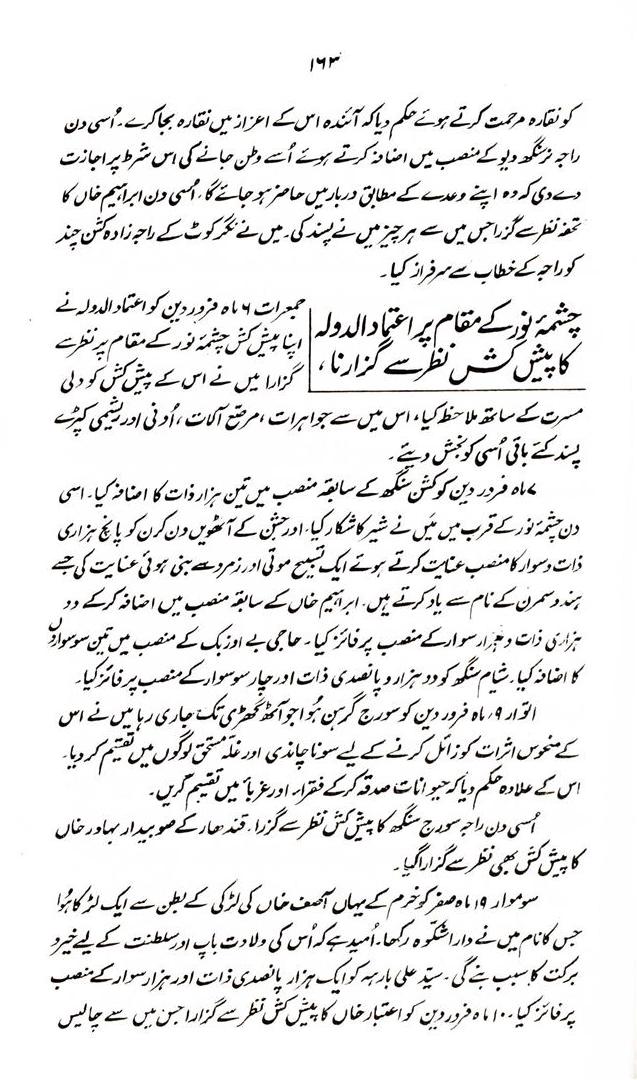 ۱۶۳
کو نقارہ مرحمت کرتے ہوئے حکم دیا کہ آئندہ اس کے اعزاز میں نقارہ بجا کرے۔ اُسی دن
راجہ نرسنگھ دیو کے منصب میں اضافہ کرتے ہوئے اُسے وطن جانے کی اس شرط پر اجازت
دے دی کہ وہ اپنے وعدے کے مطابق دربار میں حاضر ہو جائے گا، اُسی دن ابراہیم خاں کا
تحفہ نظر سے گزرا جس میں سے ہر چیز میں نے پسند کی۔ میں نے نگر کوٹ کے راجہ زادہ کشن چند
کو راجہ کے خطاب سے سرفراز کیا۔
چشمۂ نور کے مقام پر اعتماد الدولہ
کا پیش کش نظر سے گزارنا،
جمعرات ۶ ماہ فروردین کو اعتماد الدولہ نے
اپنا پیش کش چشمۂ نور کے مقام پر نظر سے
گزارا میں نے اس کے پیش کش کو دلی
مسرت کے ساتھ ملاحظہ کیا، اس میں سے جواہرات، مرصّع آلات، اُونی اور ریشمی کپڑے
پسند کئے باقی اُسی کو بخش دیئے۔
۷ ماہ فروردین کو کشن سنگھ کے سابقہ منصب میں تین ہزار ذات کا اضافہ کیا۔ اسی
دن چشمۂ نور کے قرب میں میں نے شیر کا شکار کیا، اور جشن کے آٹھویں دن کرن کو پانچ ہزاری
ذات و سوار کا منصب عنایت کرتے ہوئے ایک تسبیح موتی اور زمرد سے بنی ہوئی عنایت کی جسے
ہندو سمرن کے نام سے یاد کرتے ہیں۔ ابراہیم خاں کے سابقہ منصب میں اضافہ کر کے دو
ہزاری ذات و ہزار سوار کے منصب پر فائز کیا۔ حاجی بے اوزبک کے منصب میں تین سو سواروں
کا اضافہ کیا۔ شیام سنگھ کو دو ہزار و پانصدی ذات اور چار سو سوار کے منصب پر فائز کیا۔
اتوار ۹، ماہ فروردین کو سورج گرہن ہُوا جو آٹھ گھڑی تک جاری رہا میں نے اس
کے منحوس اثرات کو زائل کرنے کے لیے سونا چاندی اور غلّہ مستحق لوگوں میں تقسیم کر دیا۔
اس کے علاوہ حکم دیا کہ حیوانات صدقہ کر کے فقراء اور غرباً میں تقسیم کریں۔
اُسی دن راجہ سورج سنگھ کا پیش کش نظر سے گزرا۔ قندھار کے صوبیدار بہادر خاں
کا پیش کش بھی نظر سے گزارا گیا۔
سوموار ۱۹ ماہ صفر کو خرم کے یہاں آصف خاں کی لڑکی کے بطن سے ایک لڑکا ہُوا
جس کا نام میں نے دارا شکوہ رکھا۔ اُمید ہے کہ اُس کی ولادت باپ اور سلطنت کے لیے خیر و
برکت کا سبب بنے گی۔ سیّد علی بارہہ کو ایک ہزار پانصدی ذات اور ہزار سوار کے منصب
پر فائز کیا۔ ۱۰ ماہ فروردین کو اعتبار خاں کا پیش کش نظر سے گزارا جس میں سے چالیس